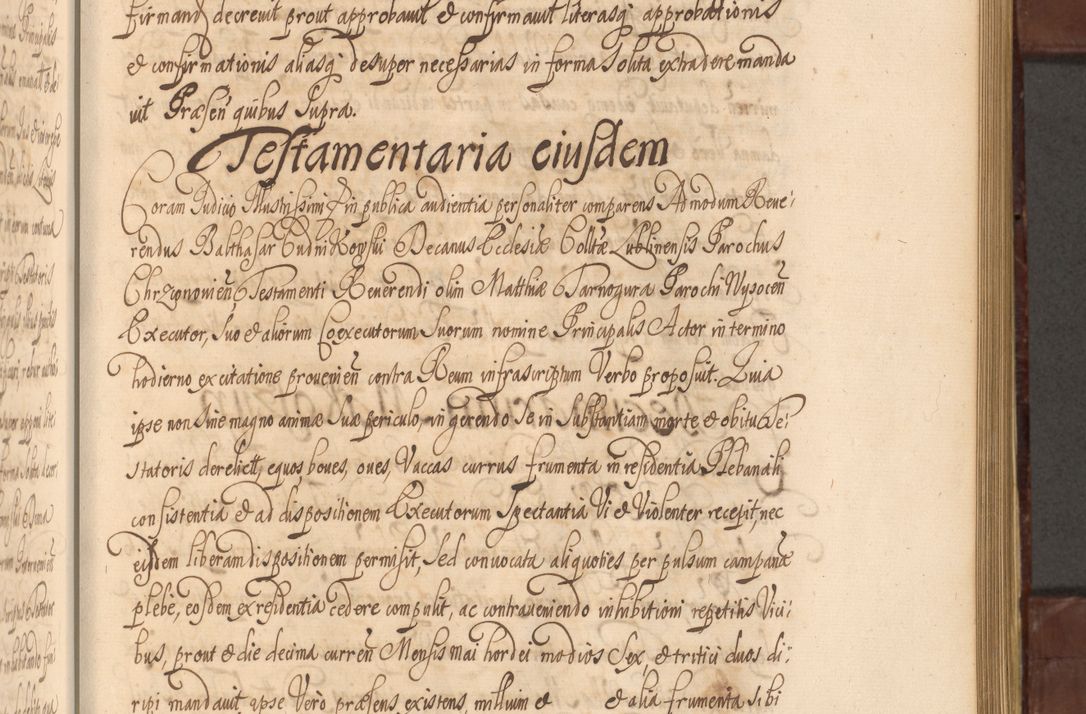 firmand decrevit prout approbavit et confirmavit literasq approbationis
et confirmationis aliasq desuper necessarias in forma solita extradere manda
vit Præsen quibus supra.
Testamentaria eiusdem
Coram Judicio Illustrissimi in publica audientia personaliter comparens Admodum Reve:
rendus Balthasar Decanus Ecclesiæ Colltæ Lublinensis Parochus
Testamenti Reverendi olim Matthiæ Tarnogura Parochi Wysocen
Executor, suo et aliorum Coexecutorum suorum nomine Principalis Actor in termino
hodierno ex citatione provenien contra Reum infrascriptum Verbo proposuit. Quia
ipse non sine magno animæ suæ periculo, in gerendo se in substantiam morte et obitu Te:
statoris derelict, equos boves, oves, Vaccas currus frumenta in residentia Plebanali
consistentia et ad dispositionem Executorum spectantia Vi et Violenter recepit, nec
eisdem liberam dispositionem permisit, sed convocata aliquoties per pulsum campanæ
plebe, eosdem ex residentia cedere compulit, ac contraveniendo inhibitioni repetitis Vici:
bus, prout et die decima curren Mensis mai hordei modios sex, et tritici duos di:
ripi mandavit ipse Vero præsens existens, milium et et alia frumenta sibi